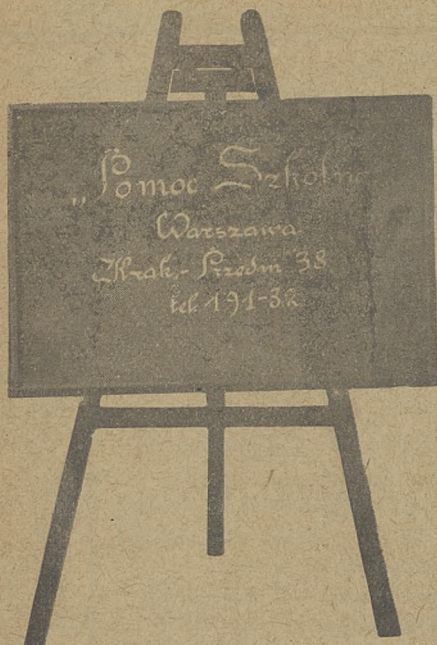 „Pomoc Szkolna
Warszawa
Krak.- Przedm 38
tel. 191-32